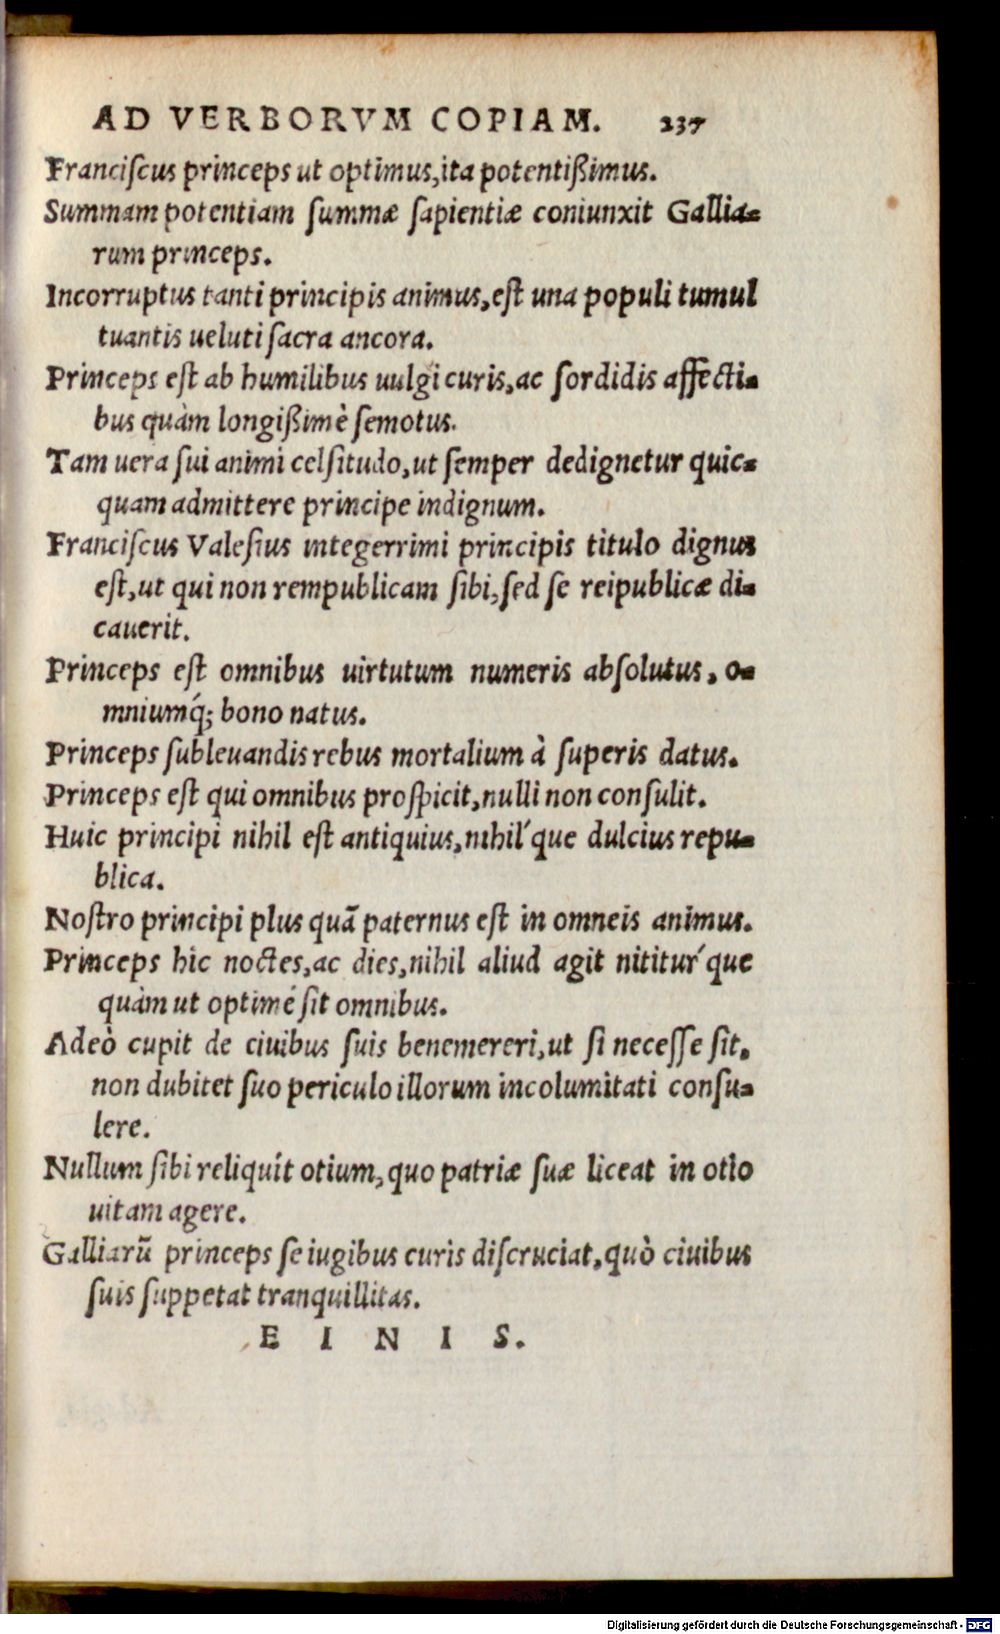 AD VERBORVM COPIAM. 237
Franciscus princeps ut optimus, ita potentißimus.
Summam potentiam summæ sapientiæ coniunxit Gallia-
rum princeps.
Incorruptus tanti principis animus, est una populi tumul
tuantis ueluti sacra ancora.
Princeps est ab humilibus uulgi curis, ac sordidis affecti-
bus quàm longißimè semotus.
Tam uera sui animi celsitudo, ut semper dedignetur quic-
quam admittere principe indignum.
Franciscus Valesius integerrimi principis titulo dignus
est, ut qui non rempublicam sibi, sed se reipublicæ di-
cauerit.
Princeps est omnibus uirtutum numeris absolutus, o-
mniumq́; bono natus.
Princeps subleuandis rebus mortalium à superis datus.
Princeps est qui omnibus prospicit, nulli non consulit.
Huic principi nihil est antiquius, nihil´que dulcius repu-
blica.
Nostro principi plus quã paternus est in omneis animus.
Princeps hic noctes, ac dies, nihil aliud agit nititur´que
quàm ut optimé sit omnibus.
Adeò cupit de ciuibus suis benemereri, ut si necesse sit,
non dubitet suo periculo illorum incolumitati consu-
lere.
Nullum sibi reliquit otium, quo patriæ suæ liceat in otio
uitam agere.
Galliarũ princeps se iugibus curis discruciat, quò ciuibus
suis suppetat tranquillitas.
E I N I S.
Digitalisierung gefördert durch die Deutsche Forschungsgemeinschaft - DFG